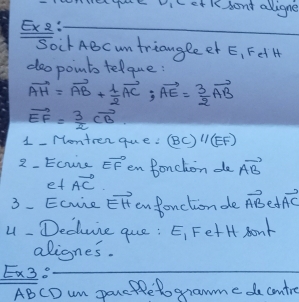 D, C et K sont aligné
Ex 2:
Soit ABC un triangle et E, F et H
des points tel que :
AH = AB + 1/2 AC ; AE = 3/2 AB
EF = 3/2 CB
1 - Montrer que : (BC) // (EF)
2 - Ecrire EF en fonction de AB
et AC
3 - Ecrire EH en fonction de AB et AC
4 - Deduire que : E, F et H sont
alignés.
Ex 3:
ABCD un parallélogramme de centre